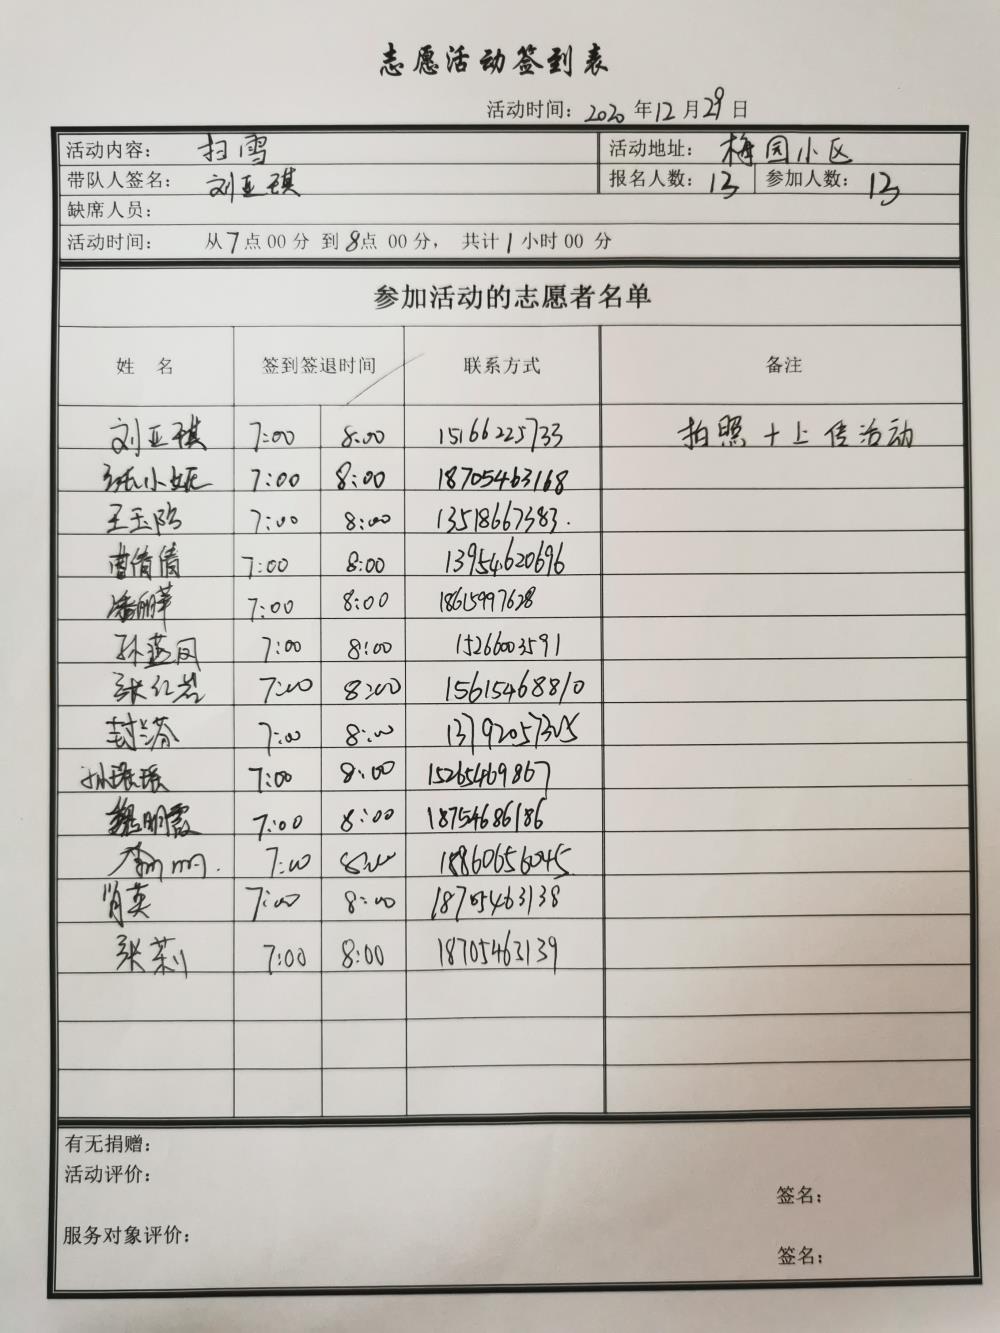 志愿活动签到表
活动时间：2020 年12 月29 日
活动内容： 扫雪 活动地址： 梅园小区
带队人签名： 刘亚琪 报名人数：13 参加人数：13
缺席人员：
活动时间： 从7点00分 到8点 00分， 共计1小时00 分
参加活动的志愿者名单
姓 名 签到签退时间 联系方式 备注
刘亚琪 7:00 8:00 15166225733 拍照+上传活动
张小妮 7:00 8:00 18705463168
王玉 7:00 8:00 13518667383.
曹倩倩 7:00 8:00 13954620696
潘丽萍 7:00 8:00 18615997628
孙燕凤 7:00 8:00 15266003591
张红岩 7:00 8:00 15615468810
封兰芬 7:00 8:00 13792057305
孙瑗瑗 7:00 8:00 15265469867
魏明霞 7:00 8:00 18754686186
7:00 8:00 18860656045
肖英 7:00 8:00 18705463138
张莉 7:00 8:00 18705463139
有无捐赠：
活动评价：
签名：
服务对象评价：
签名：